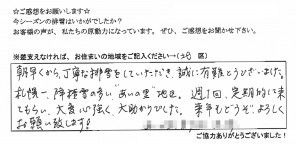 ☆ご感想をお願いします☆
今シーズンの排雪はいかがでしたか?
お客様の声が、私たちの原動力になっています。ぜひ、ご感想をお聞かせ下さい。
※差支えなければ、お住まいの地域をご記入ください→(北 区)
朝早くから、丁寧な排雪をしていただき、誠に有難とうございました。
札幌一、降積雪の多い"あいの里"地区。週1回、定期的に来
てもらい、大変心強く、大助かりでした。来年もどうぞ、よろしく
お願い致します!
ご協力ありがとうございました!